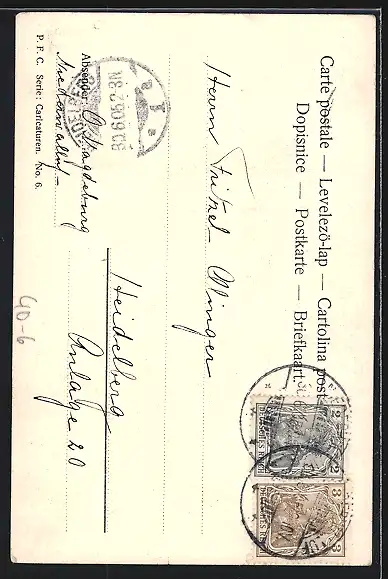 Carte postale — Levelező-lap — Cartolina post
Dopisnice — Postkarte — Briefkaart.
Herrn Fritzel Winger
Heidelberg
Anlage 20
Absender: Magdeburg
P. F. C. Serie: Caricaturen. No. 6.
40-6
2
2
DEUTSCHES REICH
3
3
DEUTSCHES REICH